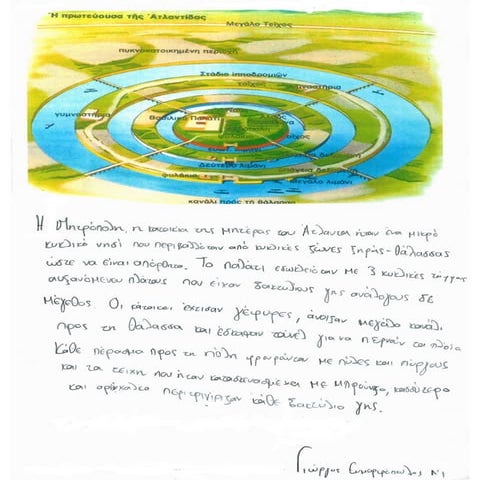 Ἡ πρωτεύουσα τῆς Ἀτλαντίδας
Μεγάλο Τεῖχος
πυκνοκατοικημένη περιοχή
Στάδιο ἱπποδρομιῶν
τεῖχος
γυμναστήρια
γυμναστήρια
Βασιλικό Παλάτι
τεῖχος
Δεύτερο λιμάνι
φυλάκια
ὑπόγεια δεξαμενή
Μεγάλο λιμάνι
κανάλι πρός τή θάλασσα
Η Μητρόπολη, η κατοικία της μητέρας των Ατλάντων ήταν ένα μικρό
κυκλικό νησί που περιβαλλόταν από κυκλικές ζώνες ξηράς-θάλασσας
ώστε να είναι απόρθητο. Το παλάτι εσωκλειόταν με 3 κυκλικές τάφρους
αυξανόμενου πλάτους που είχαν δακτυλίους γης ανάλογους σε
μέγεθος Οι κάτοικοι έχτισαν γέφυρες, άνοιξαν μεγάλο κανάλι
προς τη θάλασσα και έσκαψαν τούνελ για να περνάν τα πλοία
Κάθε πέρασμα προς τη πόλη φρουρούνταν με πύλες και πύργους
και τα τείχη που ήταν κατασκευασμένα με μπρούντζο, κασσίτερο
και ορείχαλκο περιτριγύριζαν κάθε δακτύλιο γης.
Γιώργος